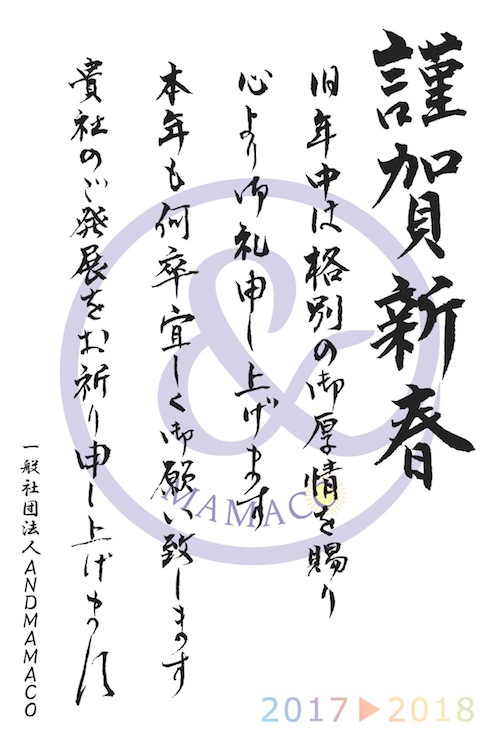 謹賀新春
旧年中は格別の御厚情を賜り
心より御礼申し上げます
本年も何卒宜しく御願い致します
貴社のご発展をお祈り申し上げます
一般社団法人ANDMAMACO
&
MAMACO
2017▶2018